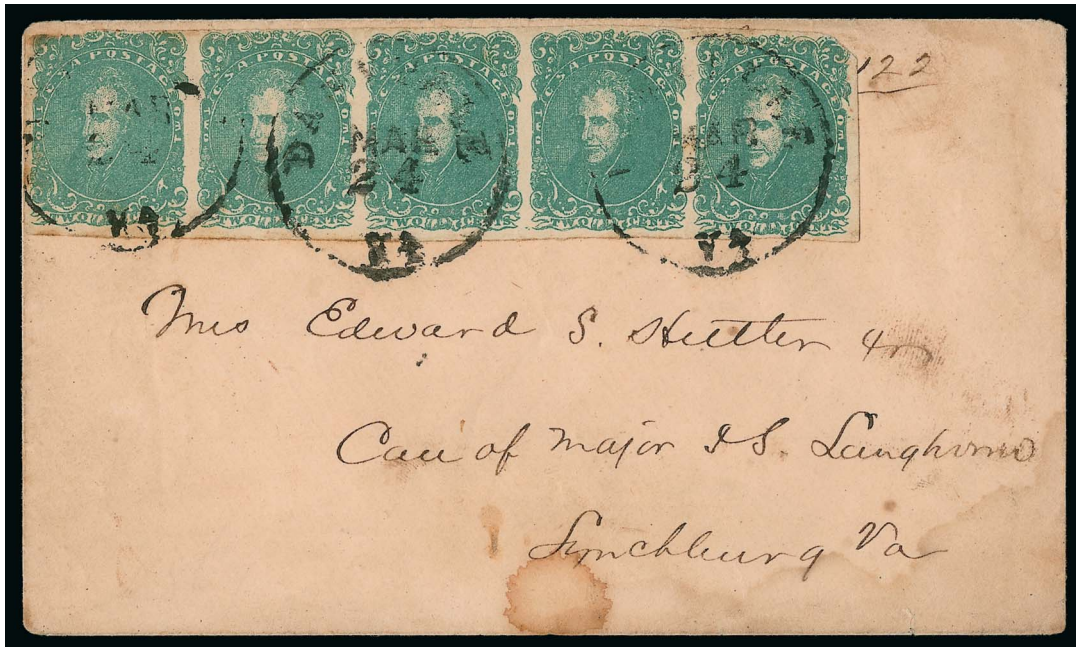 122
C S A POSTAGE
TWO CENTS
C S A POSTAGE
TWO CENTS
C S A POSTAGE
TWO CENTS
C S A POSTAGE
TWO CENTS
C S A POSTAGE
TWO CENTS
MAR
24
VA
DAN
MAR
24
VA
MAR
24
VA
Mrs Edward S. Hutter
Care of Major J S. Langhorne
Lynchburg Va